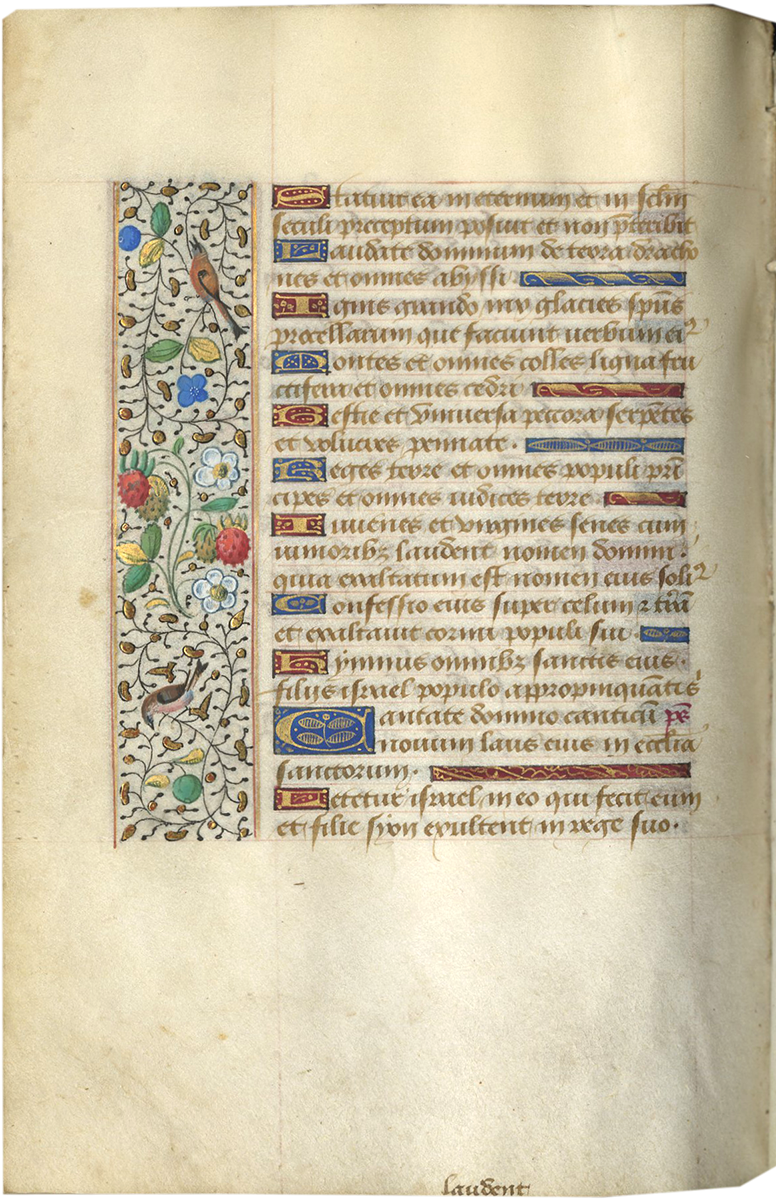 Statuit ea in eternum et in sclm̄
seculi preceptum posuit et non p̄teribit
Laudate dominum de terra dracho
nes et omnes abyssi
Ignis grando nix glacies sp̄us
procellarum que faciunt uerbum eiꝰ
Montes et omnes colles ligna fru
ctifera et omnes cedri
Bestie et vniuersa peccora serpētes
et volucres pennate.
Reges terre et omnes populi prī
cipes et omnes iudices terre
Iuuenes et virgines senes cum
iunioribꝫ laudent nomen domini:
quia exaltatum est nomen eius soliꝰ
Confessio eius super celum ⁊ terrā
et exaltauit cornu populi sui
Hymnus omnibꝫ sanctis eius.
filijs israel populo appropinquātis
Cantate domino canticū ps̄
nouum laus eius in ecclīa
sanctorum.
Letetur israel in eo qui fecit eum
et filie syon exultent in rege suo.
laudent